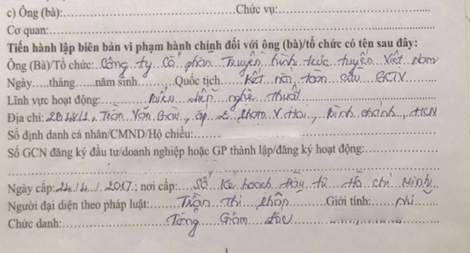 c) Ông (bà):....................Chức vụ:....................
Cơ quan:....................
Tiến hành lập biên bản vi phạm hành chính đối với ông (bà)/tổ chức có tên sau đây:
Ông (Bà)/Tổ chức: Công ty Cổ phần Truyền hình trực tuyến Việt Nam
Ngày....tháng....năm sinh..........Quốc tịch.... Kết nối toàn cầu GKTV
Lĩnh vực hoạt động:.......... Biểu diễn nghệ thuật
Địa chỉ: Trần Văn ấp 2, Phạm V. Hai, Bình Chánh, HCM
Số định danh cá nhân/CMND/Hộ chiếu:....................
Số GCN đăng ký đầu tư/doanh nghiệp hoặc GP thành lập/đăng ký hoạt động:..........
Ngày cấp: 24/4/2017; nơi cấp: Sở Kế hoạch Đầu tư Hồ Chí Minh
Người đại diện theo pháp luật: Trần Thị Giới tính: nữ
Chức danh:.......... Tổng Giám đốc